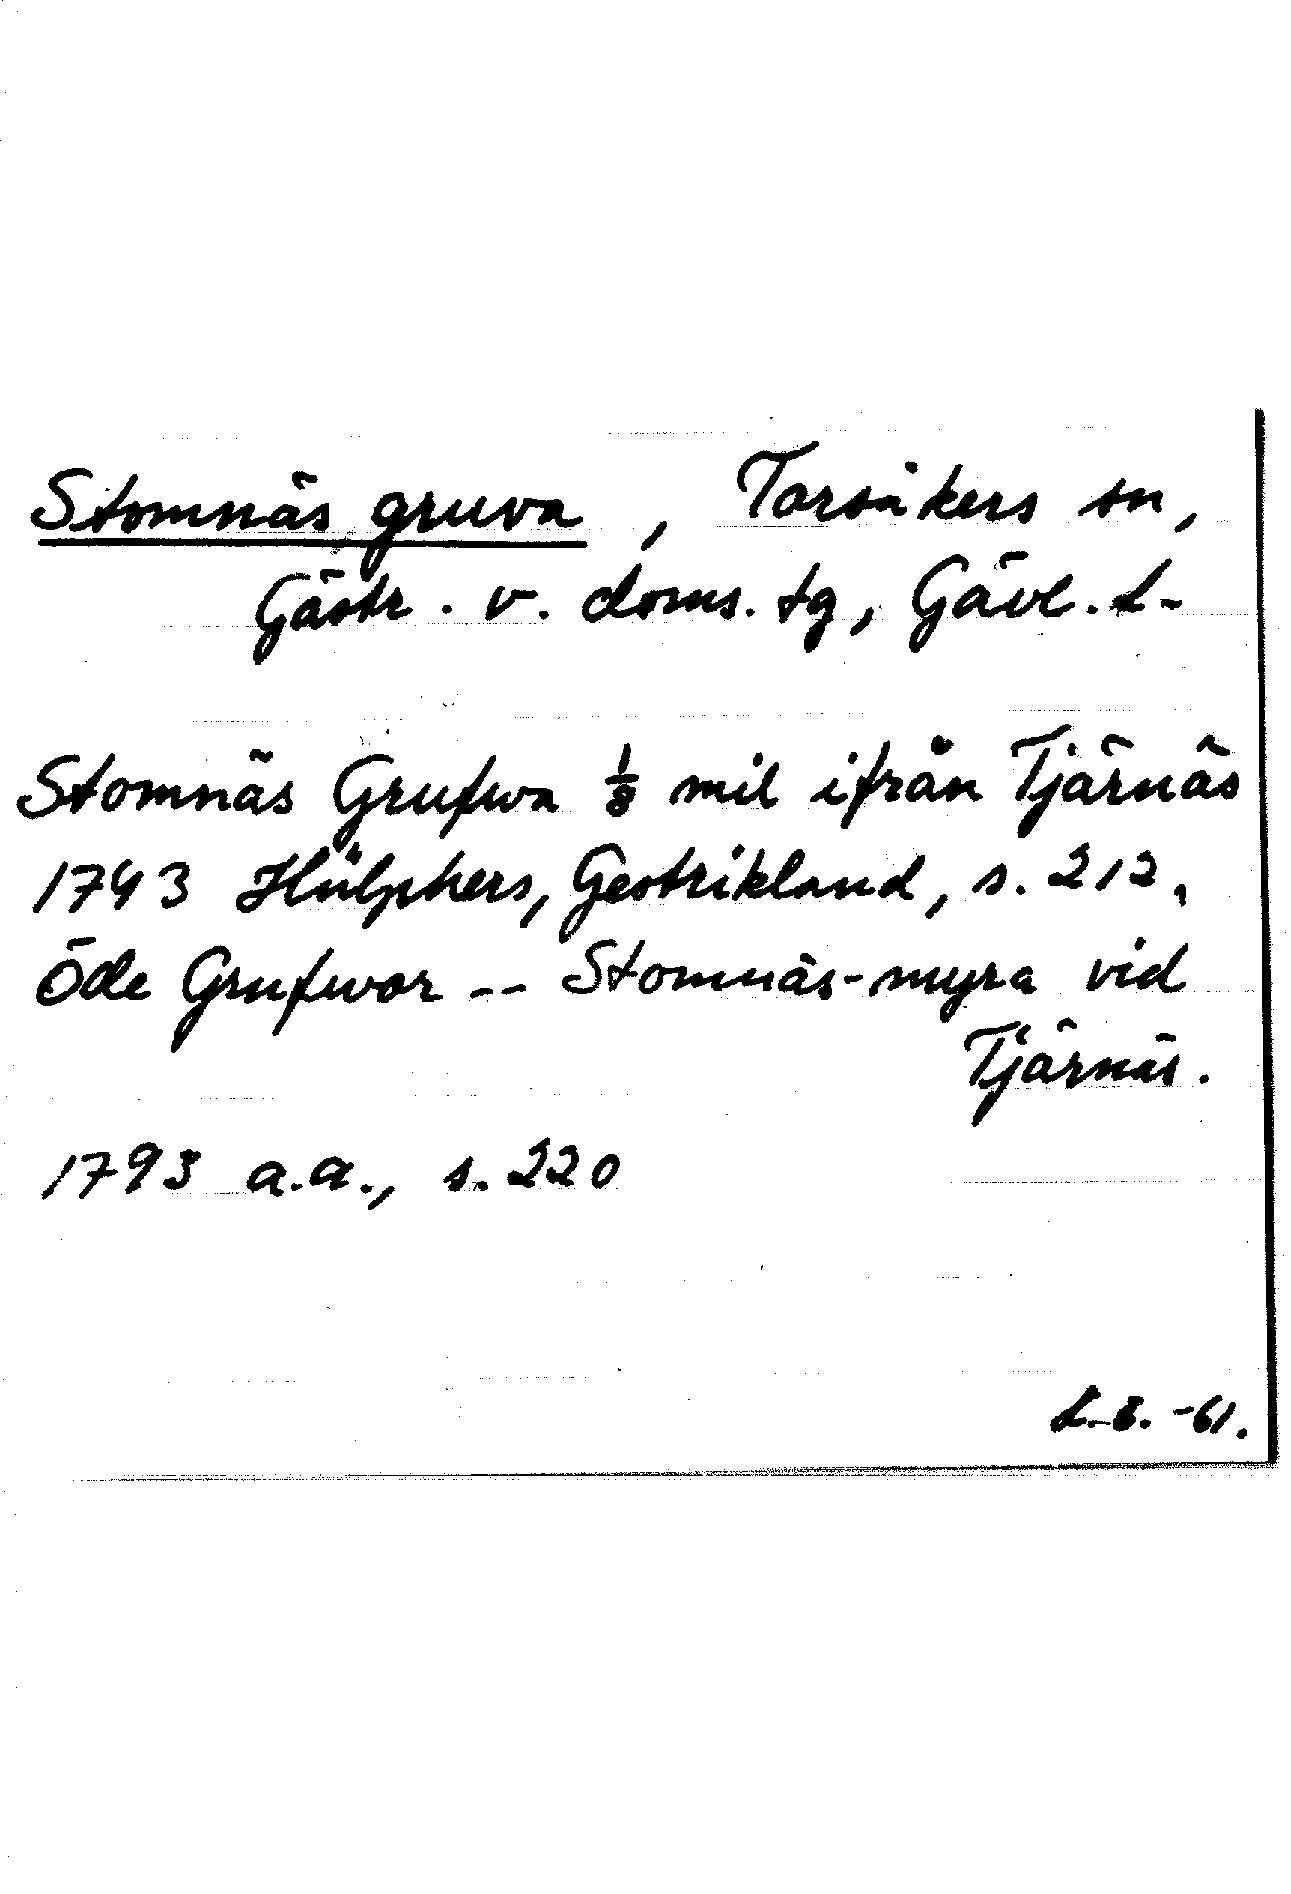 Stomnäs gruva, Torsåkers sn,
Gästr. v. doms. tg, Gävl. L-
Stomnäs Grufwa 1/8 mil ifrån Tjärnäs
1743 Hülphers, Gestrikland, s. 212,
Öde Grufwor -- Stomnäs-myra vid
Tjärnäs.
1793 a.a., s. 220
-61.